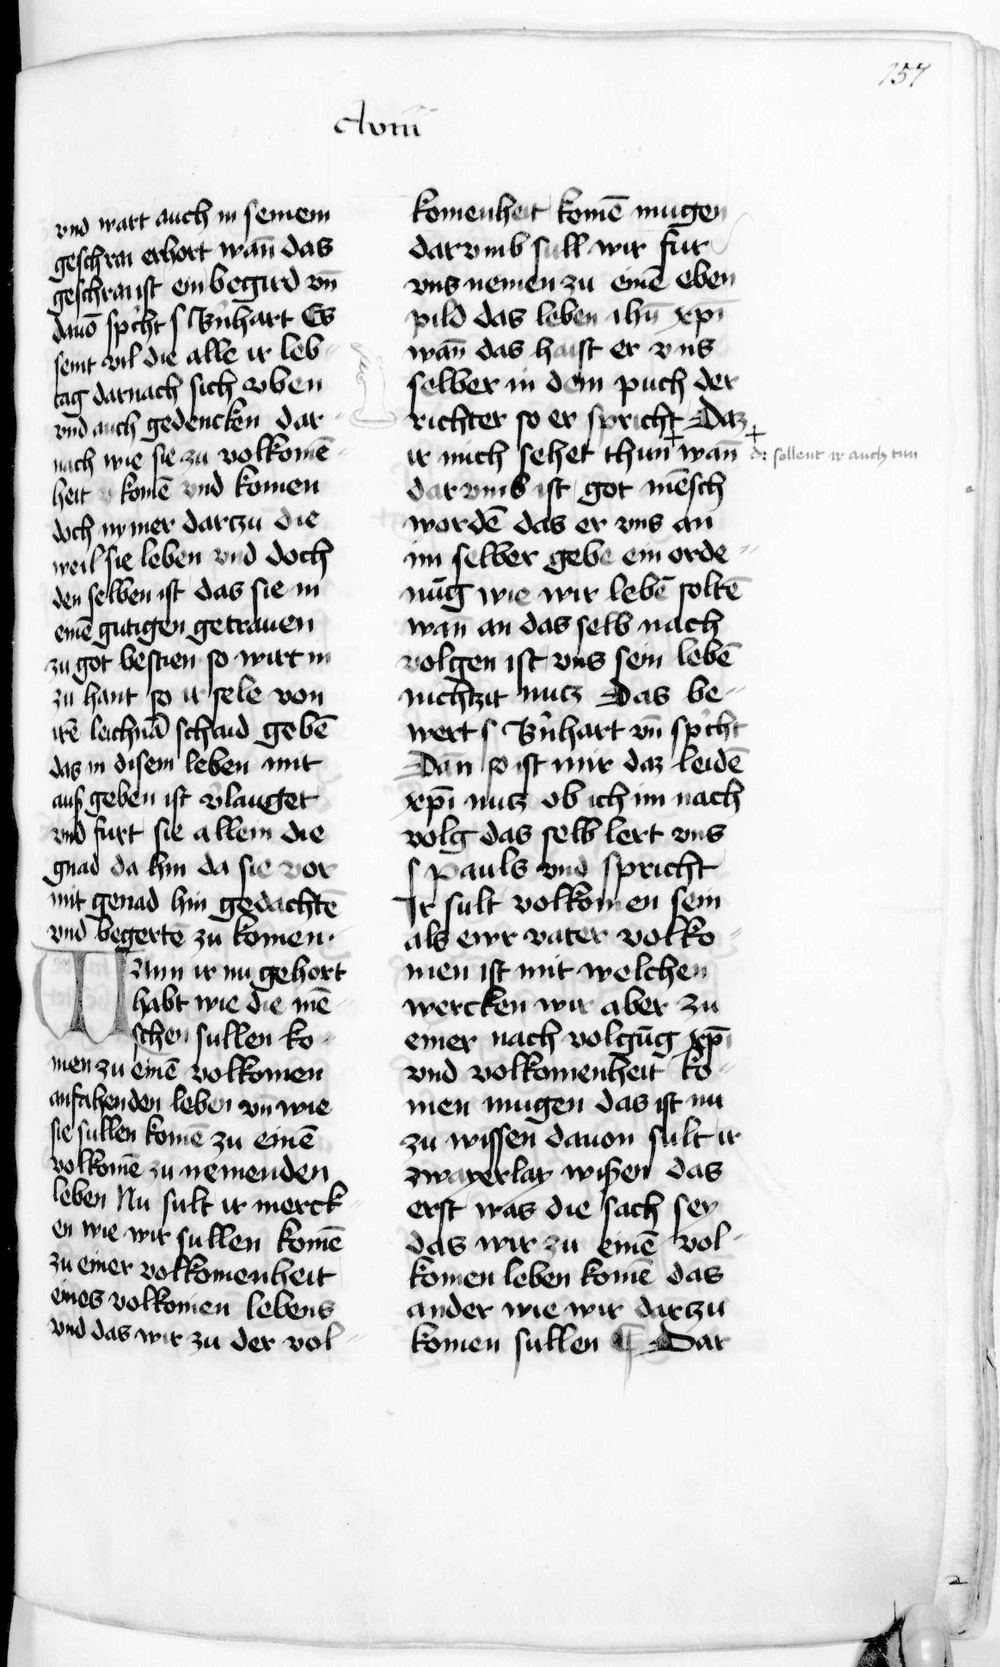 157
cxviii
vnd wart auch in seinem
geschrai erhort wan̄ das
geschrai ist ein begird vn̄
dauō spͥcht s Bn̄hart Es
seint vil die alle ir leb-
tag darnach sich vben
vnd auch gedencken dar-
nach wie sie zu volkomē-
heit komē vnd komen
doch nymer dartzu die
weil sie leben vnd doch
den selben ist das sie in
einē gutigen getrauen
zu got bestien so wirt in
zu hant so ir sele von
irē leichnā schaid gebē
das in disem leben mit
auß geben ist v̄lauget
vnd furt sie allein die
gnad da hin da sie vor
mit genad hin gedachtē
vnd begertē zu komen.
Wann ir nu gehort
habt wie die mē-
schen sullen ko-
men zu einē volkomen
anfahenden leben vn̄ wie
sie sullen komē zu einē
volkomē zu nemenden
leben Nu sult ir merck-
en wie wir sullen komē
zu einer volkomenheit
eines volkomen lebens
vnd das wir zu der vol-
komenheit komē mugen
darvmb sull wir fur
vns nemen zu einē eben
pild das leben ihū xp̄i
wan̄ das haist er vns
selber in dem puch der
richter so er spricht Daz
ir mich sehet thun wan̄
dz sollent ir auch tun
darvmb ist got mēsch
wordē das er vns an
im selber gebe ein orde-
nūg wie wir lebē soltē
wan̄ an das selb nach
volgen ist vns sein lebē
nichtzit nutz Das be-
wert s Bn̄hart vn̄ spͥcht
Dan̄ so ist mir daz leidē
xp̄i nutz ob ich im nach
volg das selb lert vns
s Pauls vnd spricht
Ir sult volkomen sein
als ewr vater volko-
men ist mit welchen
wercken wir aber zu
einer nach volgūg xp̄i
vnd volkomenheit ko-
men mugen das ist nu
zu wissen dauon sult ir
zwayerlay wißen das
erst was die sach sey
das wir zu einē vol-
komen leben komē das
ander wie wir dartzu
komen sullen ¶ Dar